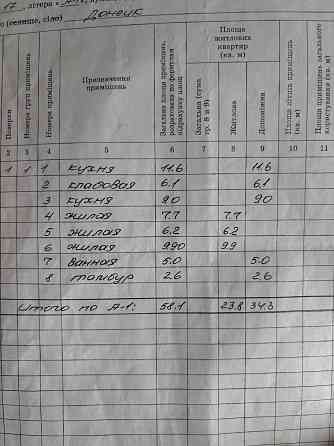 17 літера
(селище, село) Донецк
Поверхи
Номери груп приміщень
Номери приміщень
Призначення приміщень
Загальна площа приміщень, розрахована по формулам підрахунку площ
Площа житлових квартир (кв. м)
Загальна (сума гр. 8 и 9)
Житлова
Допоміжна
Площа літніх приміщень (кв. м)
Площа приміщень загального користування (кв. м)
2 3 4 5 6 7 8 9 10 11
1 1 1 кухня 11.6 11.6
2 кладовая 6.1 6.1
3 кухня 9.0 9.0
4 жилая 7.7 7.7
5 жилая 6.2 6.2
6 жилая 9.90 9.9
7 ванная 5.0 5.0
8 тамбур 2.6 2.6
Итого по А-1: 58.1 23.8 34.3